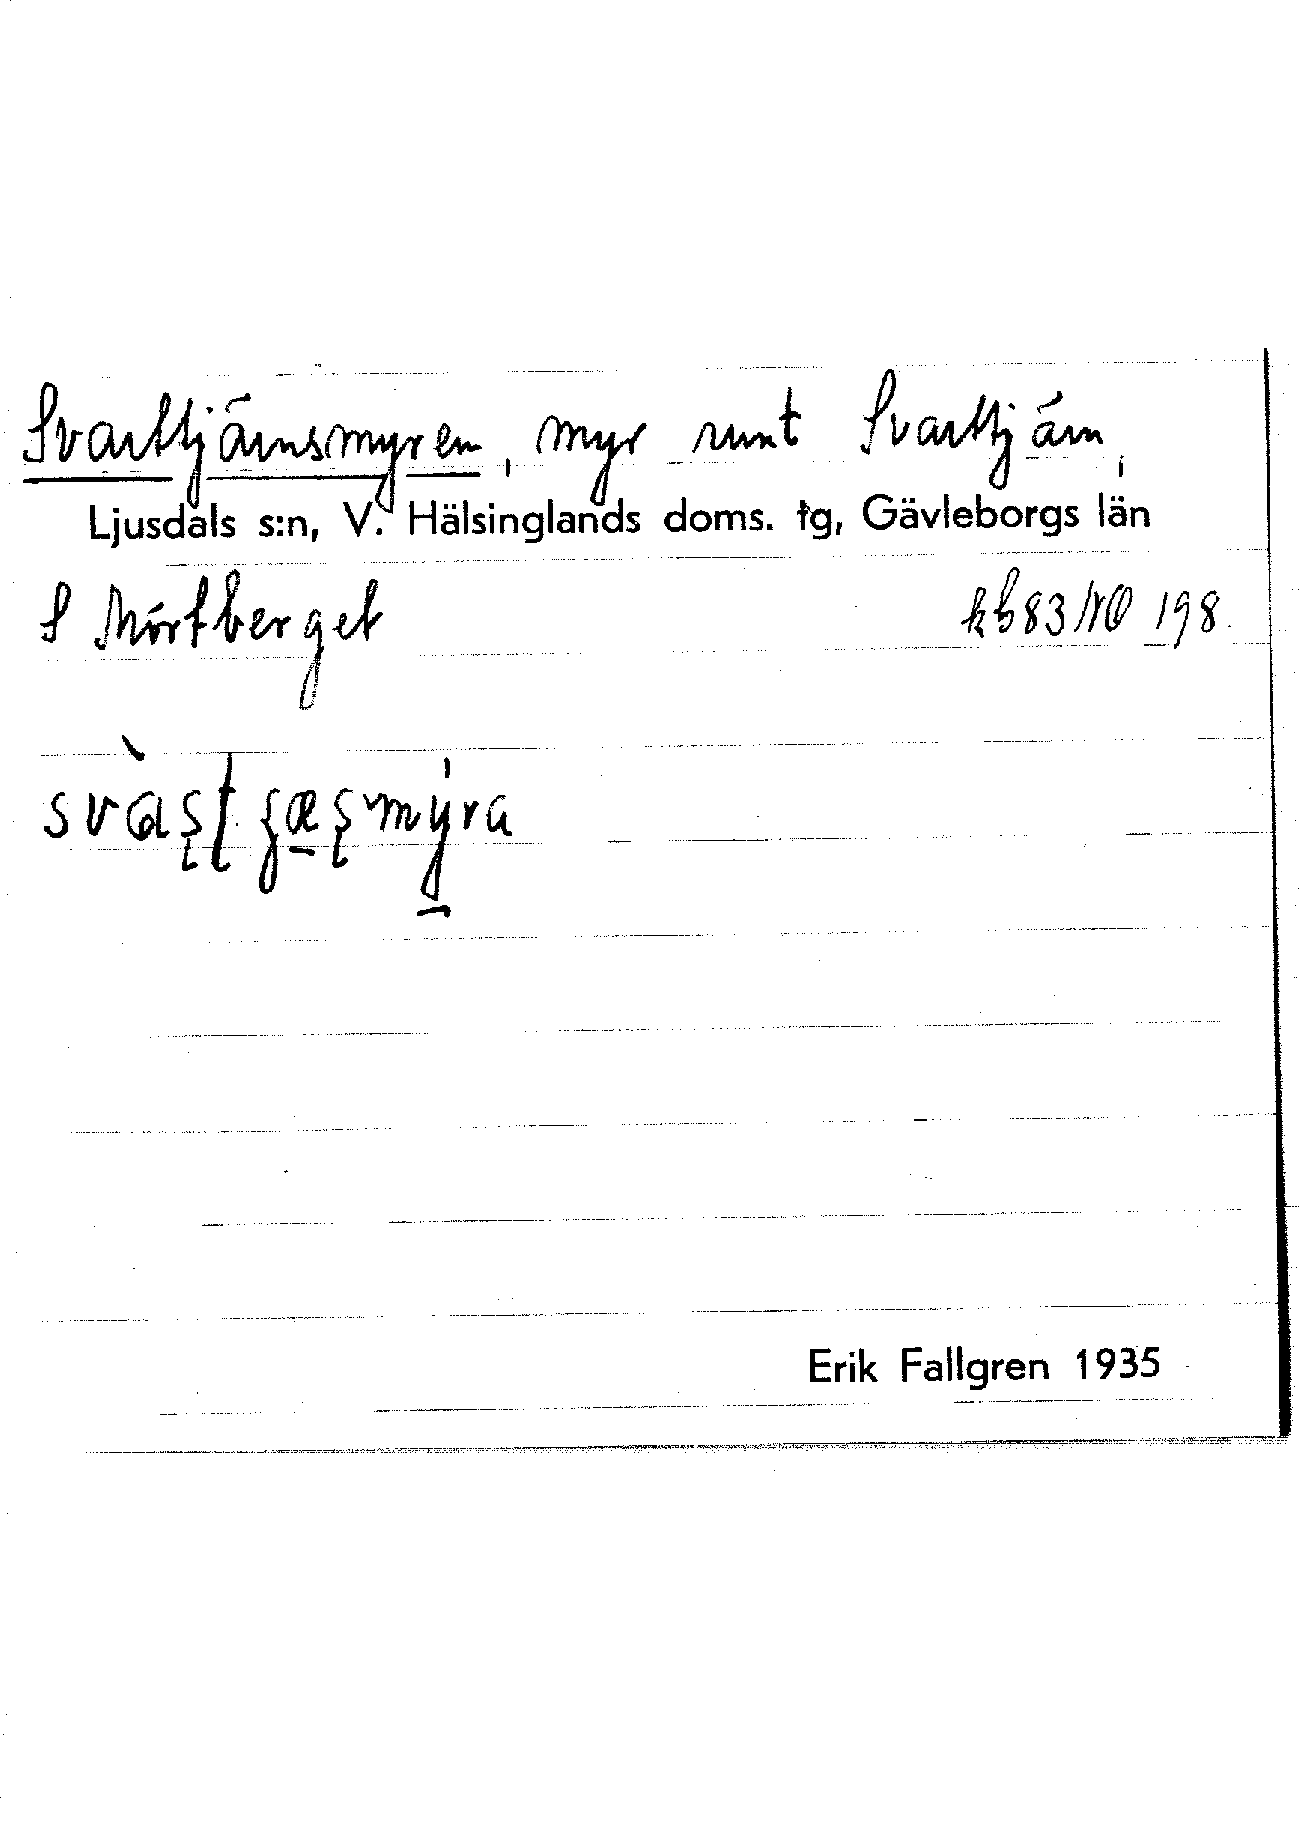 Svarttjärnsmyren, myr runt Svarttjärn,
Ljusdals s:n, V. Hälsinglands doms. tg, Gävleborgs län
S Mörtberget kb 83 NO 198
Erik Fallgren 1935